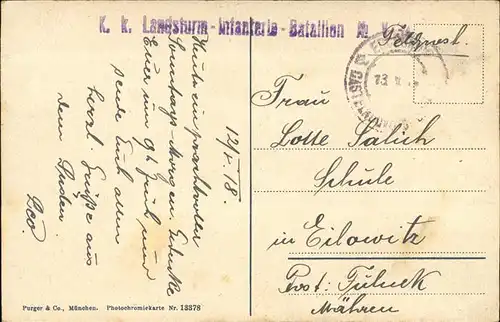 K. k. Landsturm-Infanterie-Bataillon No.
Feldpost.
12/V. 18.
Heute ein prachtvoller
Sonntags-Morgen. Gedenke
Euer um 9h früh und
sende Euch allen
herzl. Grüße aus
dem Süden.
Leo.
Frau
Lotte Salich
Schule
in Eilowitz
Post: Fulnek
Mähren
Purger & Co., München. Photochromiekarte Nr. 13378